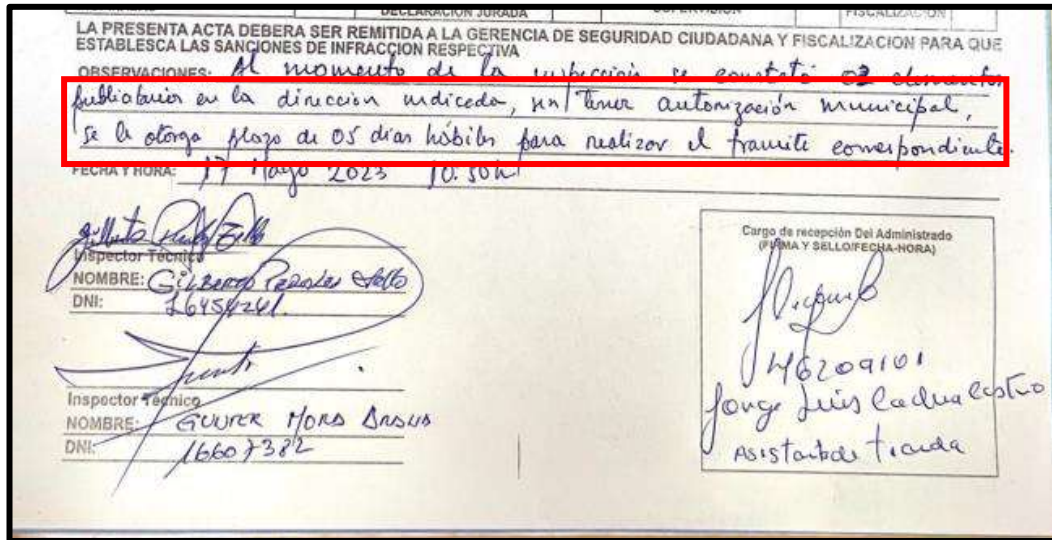 DECLARACION JURADA SUPERVISION FISCALIZACION
LA PRESENTA ACTA DEBERA SER REMITIDA A LA GERENCIA DE SEGURIDAD CIUDADANA Y FISCALIZACION PARA QUE
ESTABLESCA LAS SANCIONES DE INFRACCION RESPECTIVA
OBSERVACIONES: Al momento de la inspección se constató 02 elementos
publicitarios en la dirección indicada, sin tener autorización municipal,
se le otorga plazo de 05 días hábiles para realizar el tramite correspondiente.
FECHA Y HORA: 17 Mayo 2023 10:50h
Inspector Técnico
NOMBRE: GILBERTO
DNI: 16454241.
Inspector Técnico
NOMBRE: MORA
DNI: 16607382
Cargo de recepción Del Administrado
(FIRMA Y SELLO/FECHA-HORA)
46209101
Jorge Luis
Asistente de tienda